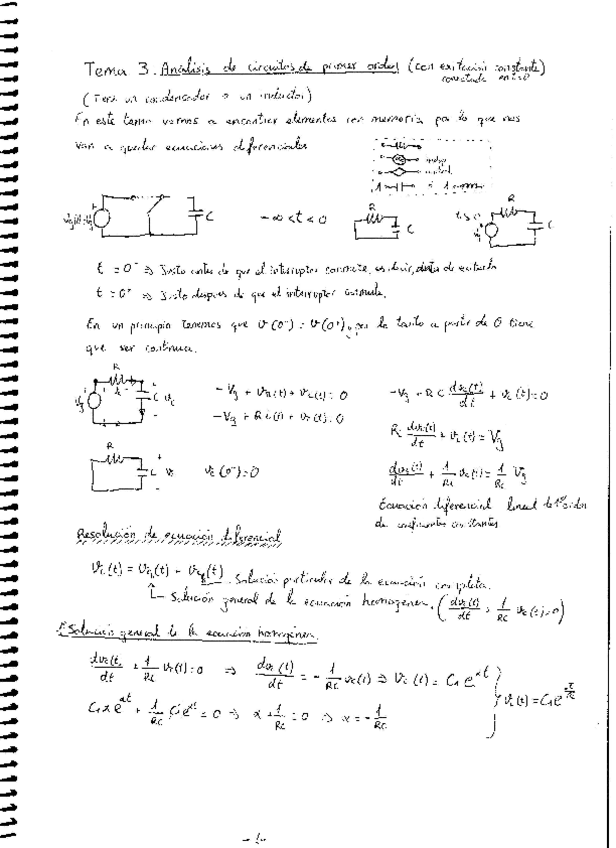 Tema 3. Análisis de circuitos de primer orden (con exitación constante)
conectada en t=0
(Tiene un condensador o un inductor)
En este tema vamos a encontrar elementos con memoria por lo que nos
van a quedar ecuaciones diferenciales
R
R
C
-∞ < t < 0
C
t > 0
C
t = 0⁻ ⇒ Justo antes de que el interruptor conmute, es decir,
t = 0⁺ ⇒ Justo despues de que el interruptor conmute.
En un principio tenemos que v(0⁻) = v(0⁺), por lo tanto a partir de 0 tiene
que ser continua.
R
C
-Vg + vR(t) + vc(t) = 0
-Vg + R i(t) + vc(t) = 0
-Vg + RC dvc(t)/dt + vc(t) = 0
RC dvc(t)/dt + vc(t) = Vg
R
vc(0⁻) = 0
dvc(t)/dt + 1/RC vc(t) = 1/RC Vg
Ecuación diferencial lineal de 1er orden
de coeficientes constantes
Resolución de ecuación diferencial
Solución particular de la ecuación completa.
Solución general de la ecuación homogenea. (dvc(t)/dt + 1/RC vc(t) = 0)
Solución general de la ecuación homogenea.
dvc(t)/dt + 1/RC vc(t) = 0 ⇒ dvc(t)/dt = -1/RC vc(t) ⇒ vc(t) = C₁ e^αt
C₁ α e^αt + 1/RC C₁ e^αt = 0 ⇒ α + 1/RC = 0 ⇒ α = -1/RC
-1-